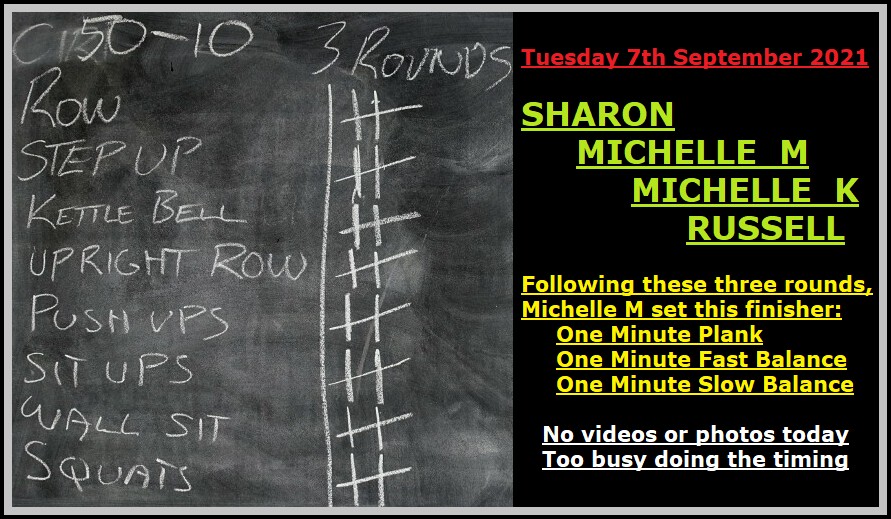 50-10
3 ROUNDS
ROW
STEP UP
KETTLE BELL
UPRIGHT ROW
PUSH UPS
SIT UPS
WALL SIT
SQUATS
Tuesday 7th September 2021
SHARON
MICHELLE M
MICHELLE K
RUSSELL
Following these three rounds,
Michelle M set this finisher:
One Minute Plank
One Minute Fast Balance
One Minute Slow Balance
No videos or photos today
Too busy doing the timing